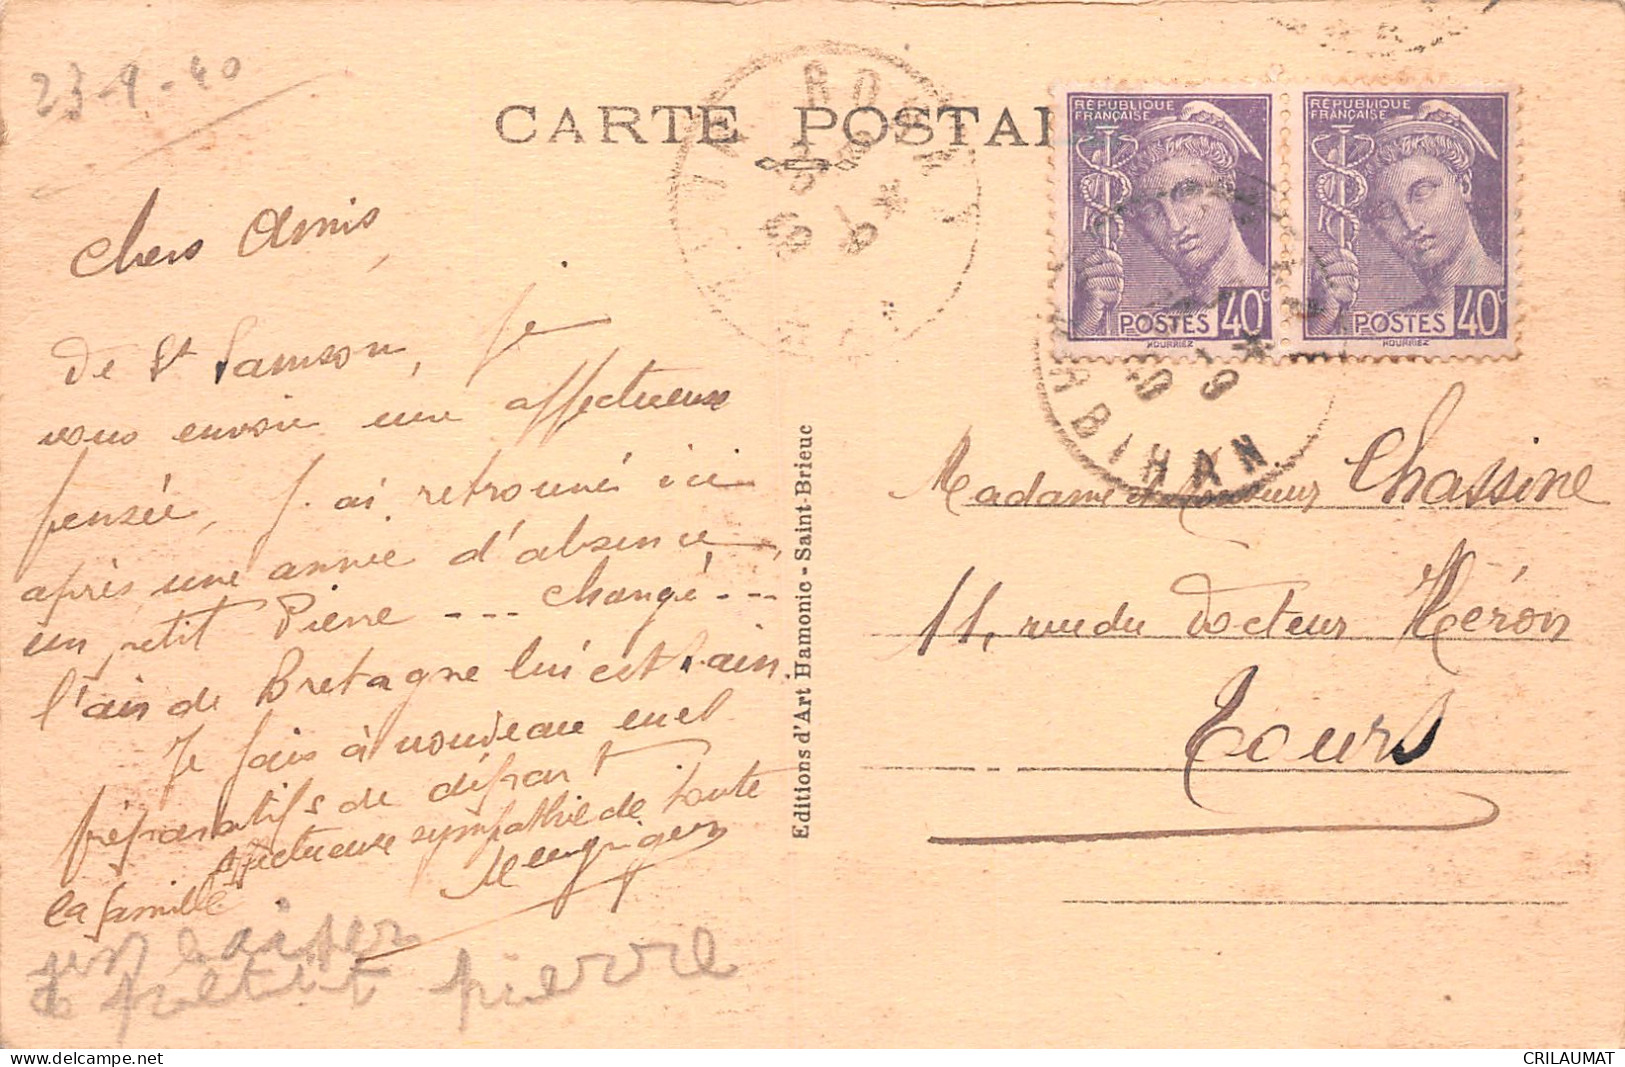 23-9-40
CARTE POSTALE
RÉPUBLIQUE FRANÇAISE
POSTES 40c
HOURRIEZ
RÉPUBLIQUE FRANÇAISE
POSTES 40c
HOURRIEZ
MORBIHAN
Chers Amis,
De St Samson, je
vous envoie une affectueuse
pensée, j'ai retrouvé ici
après une année d'absence,
un petit Pierre --- changé ---
l'air de Bretagne lui est sain.
Je fais à nouveau
préparatifs de départ
affectueuse sympathie de toute
la famille
un baiser
de petit pierre
Editions d'Art Hamonic - Saint-Brieuc
Madame et Monsieur Chassine
11, rue du Docteur Héron
Tours
CRILAUMAT